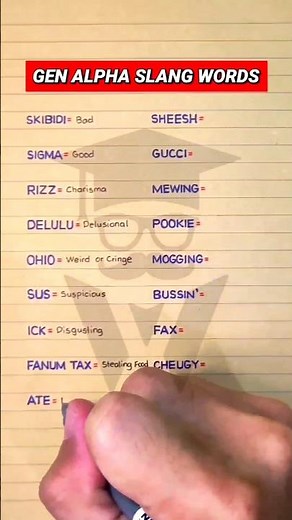 GEN ALPHA SLANG WORDS
SKIBIDI = Bad
SIGMA = Good
RIZZ = Charisma
DELULU = Delusional
OHIO = Weird or Cringe
SUS = Suspicious
ICK = Disgusting
FANUM TAX = Stealing Food
ATE =
SHEESH =
GUCCI =
MEWING =
POOKIE =
MOGGING =
BUSSIN' =
FAX =
CHEUGY =